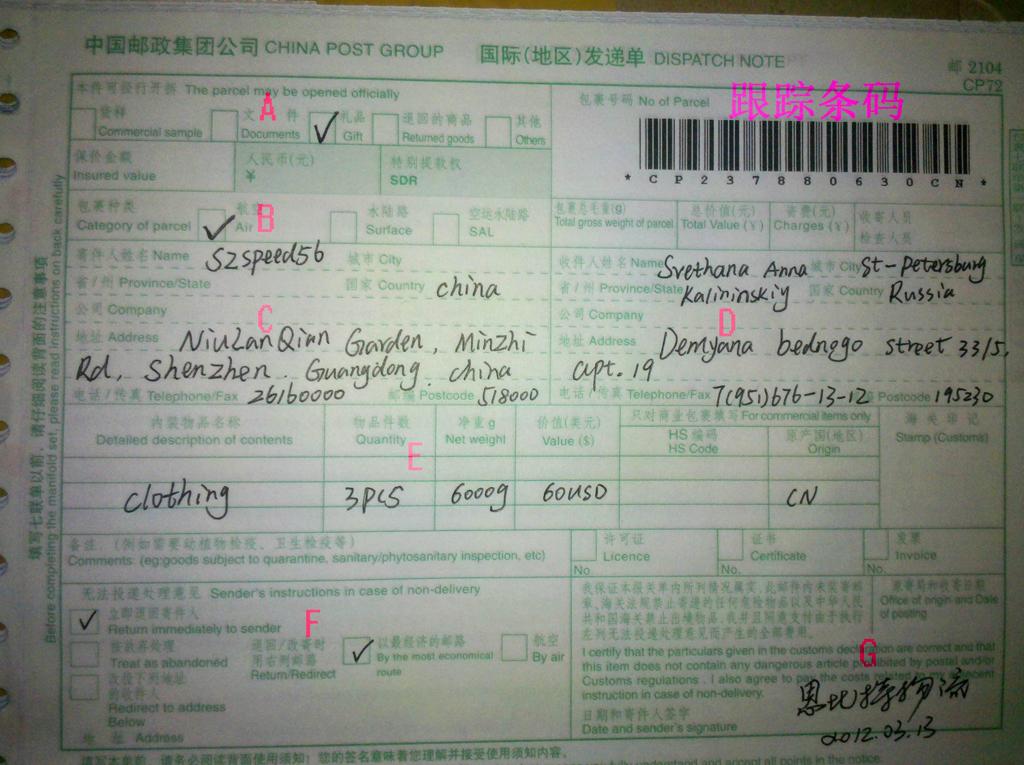 中国邮政集团公司 CHINA POST GROUP 国际(地区)发递单 DISPATCH NOTE
邮 2104
CP72
本件可拆行开拆 The parcel may be opened officially
包裹号码 No of Parcel 跟踪条码
A
货样 Commercial sample
文件 Documents
礼品 Gift
退回的商品 Returned goods
其他 Others
* C P 2 3 7 8 8 0 6 3 0 C N *
保价金额 Insured value
人民币(元) ¥
特别提款权 SDR
包裹种类 Category of parcel
航空 Air
B
水陆路 Surface
空运水陆路 SAL
包裹总毛重(g) Total gross weight of parcel
总价值(元) Total Value (¥)
资费(元) Charges (¥)
收寄人员
检查人员
寄件人姓名 Name Szspeed56 城市 City
省/州 Province/State 国家 Country china
公司 Company
C
地址 Address NiuLanQian Garden, Minzhi
Rd, Shenzhen. Guangdong. china
电话/传真 Telephone/Fax 26160000 邮编 Postcode 518000
收件人姓名 Name Svethana Anna 城市 City St-Petersburg
省/州 Province/State Kalininskiy 国家 Country Russia
公司 Company
D
地址 Address Demyana bednogo street 33/5,
apt. 19
电话/传真 Telephone/Fax 7(951)676-13-12 Postcode 195230
内装物品名称 Detailed description of contents
物品件数 Quantity
E
净重 g Net weight
价值(美元) Value ($)
只对商业包裹填写 For commercial items only
HS 编码 HS Code
原产国(地区) Origin
海关印记 Stamp (Customs)
clothing 3PCS 6000g 60USD CN
备注:(例如需要动植物检疫、卫生检疫等)
Comments: (eg:goods subject to quarantine, sanitary/phytosanitary inspection, etc)
许可证 Licence No.
证书 Certificate No.
发票 Invoice No.
无法投递处理意见 Sender's instructions in case of non-delivery
立即退回寄件人
Return immediately to sender
F
按放弃处理
Treat as abandoned
退回/改寄时
用右列邮路
Return/Redirect
以最经济的邮路
By the most economical route
航空
By air
改投下列地址
的收件人
Redirect to address
Below
地址 Address
我保证本报关单内所列情况属实,此邮件内未装寄邮
章、海关法规禁止寄递的任何危险物品以及中华人民
共和国海关禁止出境物品,我并且同意支付由于执行
左列无法投递处理意见而产生的全部费用。
Office of origin and Date
of posting
G
I certify that the particulars given in the customs declaration are correct and that
this item does not contain any dangerous article prohibited by postal and/or
Customs regulations . I also agree to pay the costs
instruction in case of non-delivery.
日期和寄件人签字
Date and sender's signature
恩比特物流
2012.03.13
填写七联单以前,请仔细阅读背面的注意事项
Before completing the manifold set, please read instructions on back carefully
填写本单前,请务必阅读背面使用须知!您的签名意味着您理解并接受使用须知内容。
fully understand and accept all points in the notice.